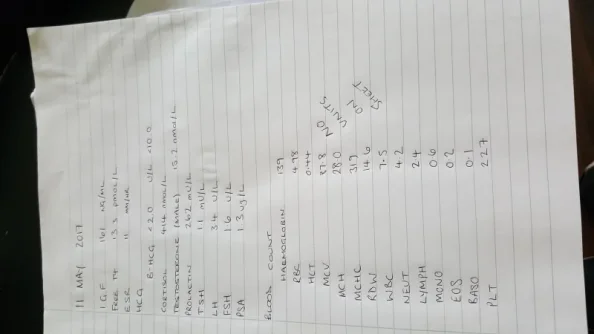 11 MAY 2017
IGF 161
FREE T4 13.3 pmol/L
ESR 11 mm/HR
HCG
B-HCG <2.0 U/L <10.0
CORTISOL 414 nmol/L
TESTOSTERONE (MALE) 15.2 nmol/L
PROLACTIN 262 mU/L
TSH 1.1 mU/L
LH 3.4 U/L
FSH 1.6 U/L
PSA 1.3 ug/L
BLOOD COUNT
HAEMOGLOBIN 139
RBC 4.98
HCT 0.44
MCV 87.8
MCH 28.0
MCHC 319
RDW 14.6
WBC 7.5
NEUT 4.2
LYMPH 2.4
MONO 0.6
EOS 0.2
BASO 0.1
PLT 227
NO
UNITS
ON
SHEET